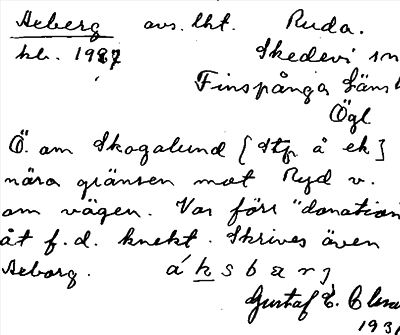 Aeberg avs. lht. Ruda.
kb. 1987 Skedevi sn
Finspånga läns h
Ögl
Ö. om Skogalund [Stp å ek]
nära gränsen mot Ryd v.
om vägen. Var förr "donation
åt f.d. knekt. Skrives även
Aeborg.
Gustaf E. Olsso
1931